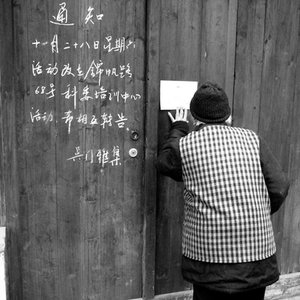 通知
十一月二十八日星期六
活动改在锦帆路
68号科委培训中心
活动,希相互转告。
吴门雅集